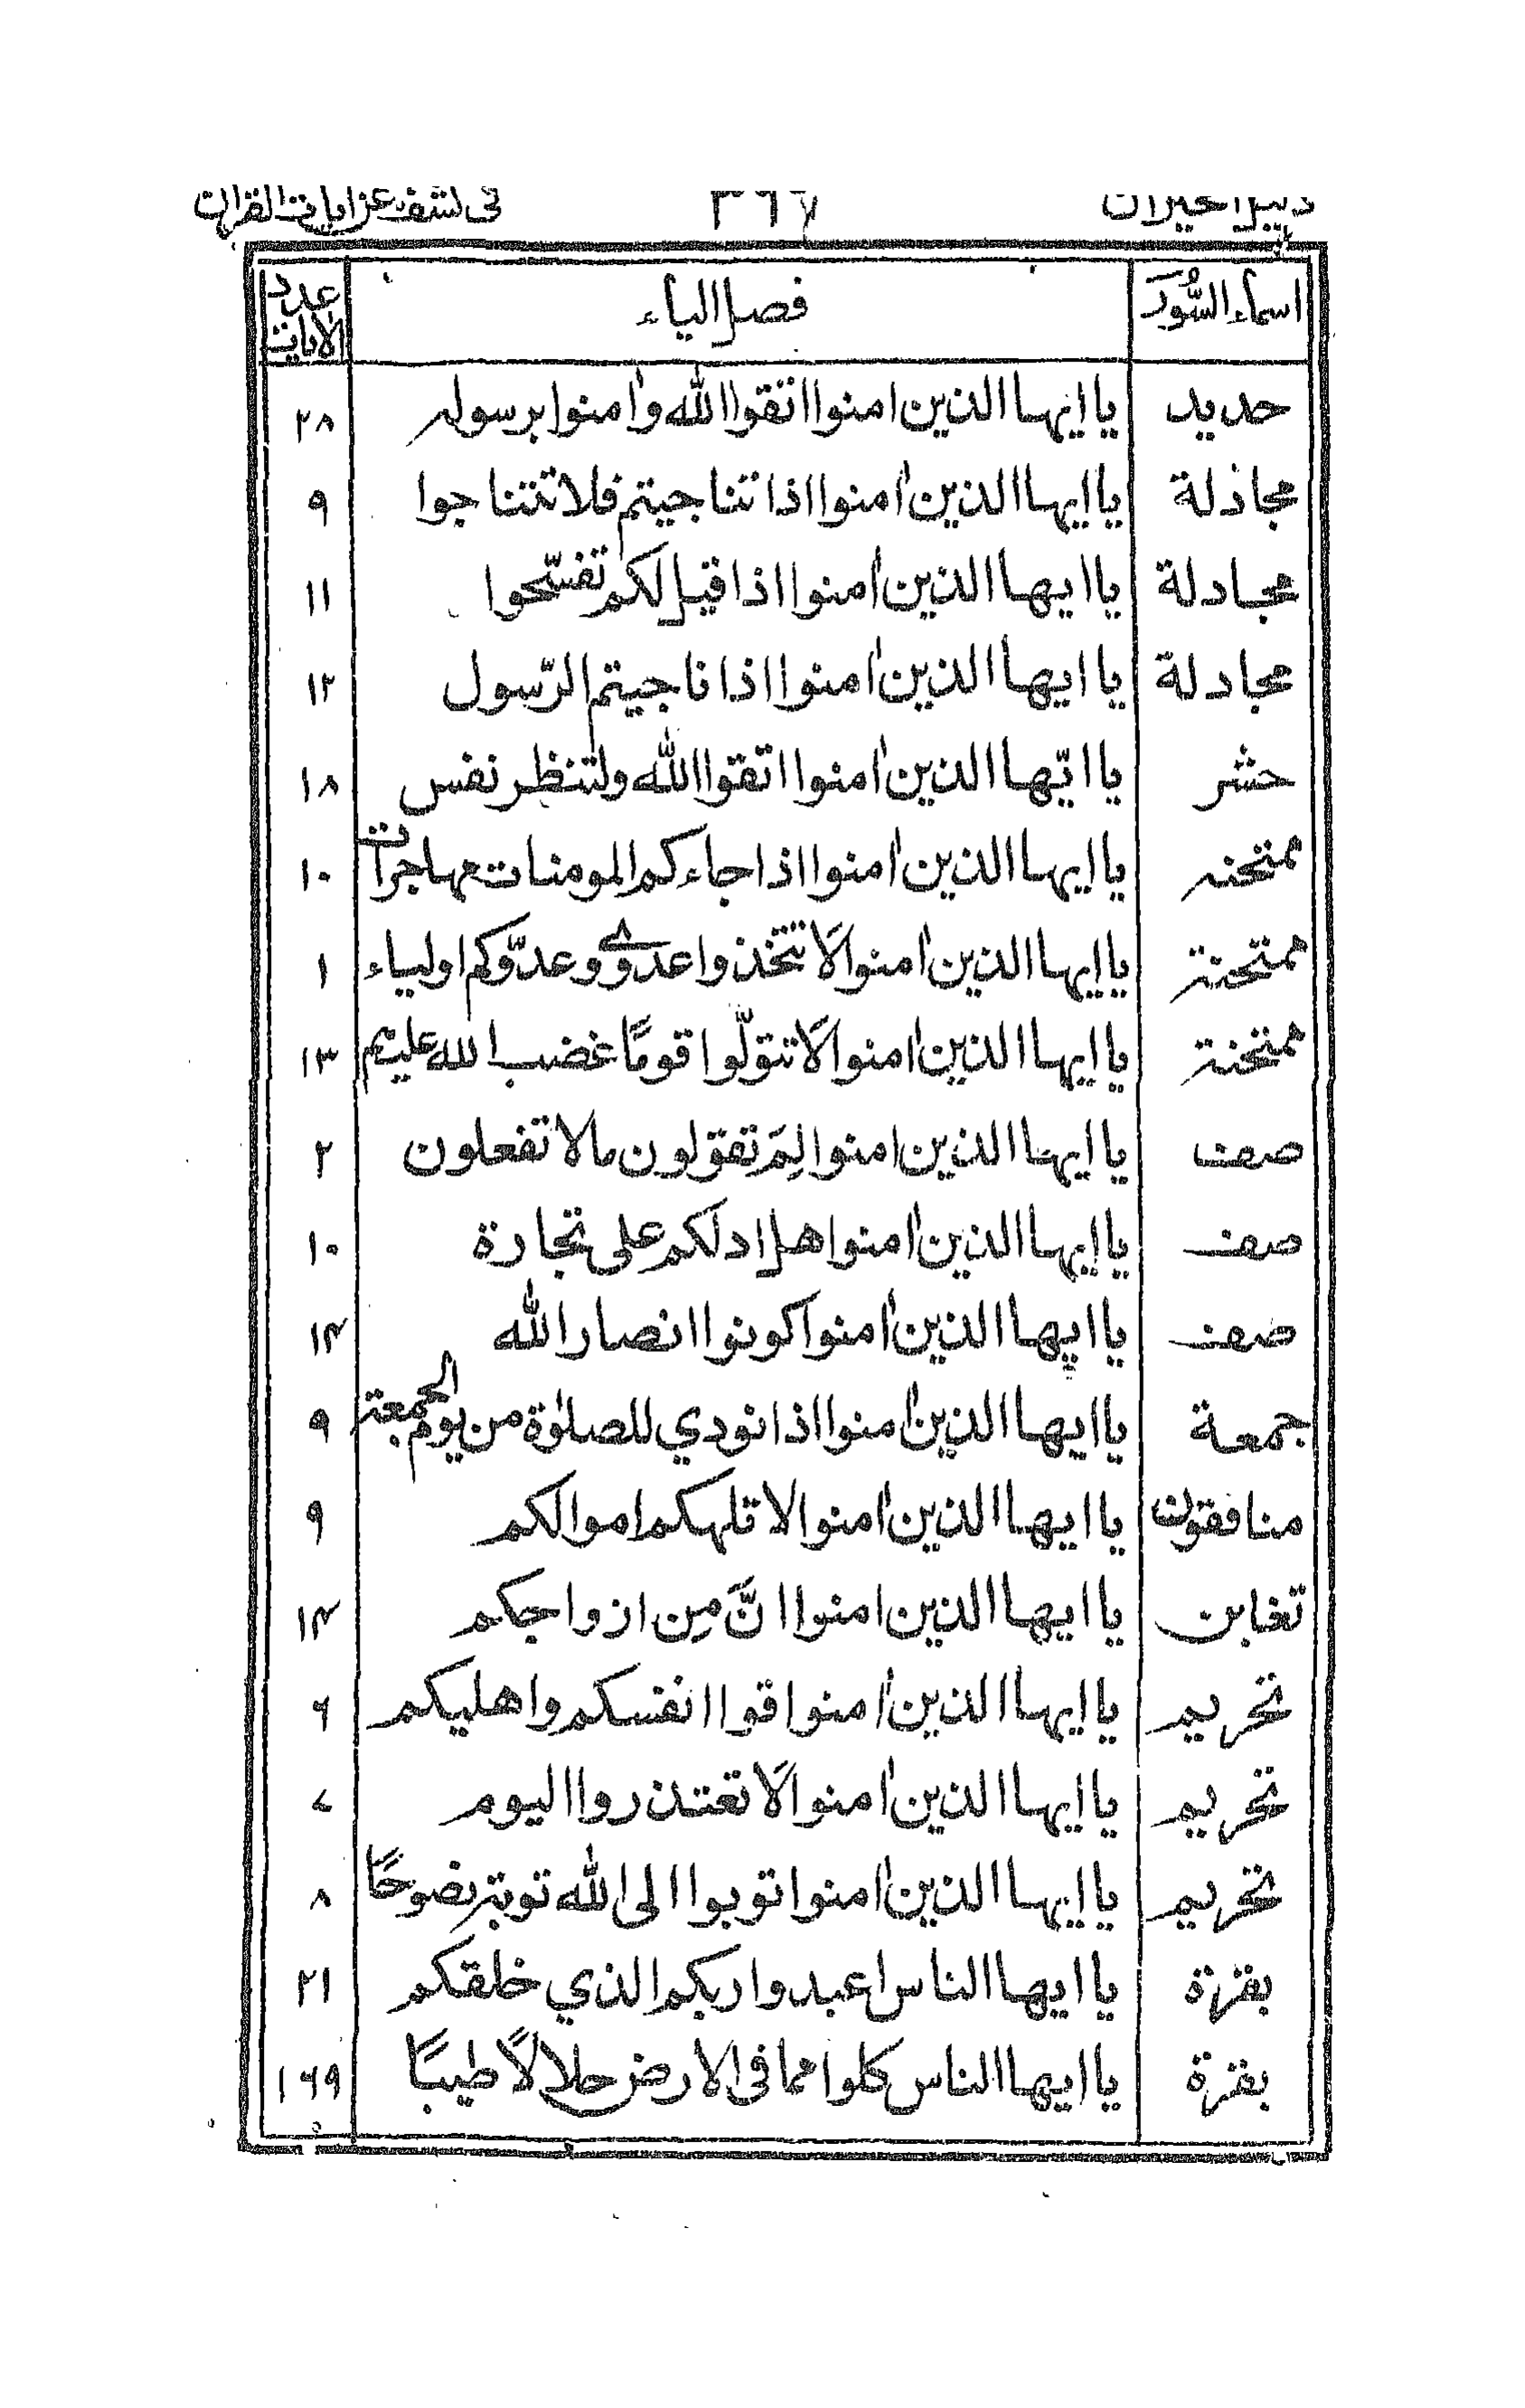 دليل الحيران ٣٦٧ في كشف عن ايات القران
اسماء السُّوَر فصل الياء عدد الايات
حديد يا ايها الذين امنوا اتقوا الله واٰمنوا برسوله ٢٨
مجادلة يا ايها الذين اٰمنوا اذا تناجيتم فلا تتناجوا ٩
مجادلة يا ايها الذين اٰمنوا اذا قيل لكم تفسّحوا ١١
مجادلة يا ايها الذين اٰمنوا اذا ناجيتم الرّسول ١٢
حشر يا ايّها الذين اٰمنوا اتقوا الله ولتنظر نفس ١٨
ممتحنه يا ايها الذين اٰمنوا اذا جاءكم المومنات مهاجرات ١٠
ممتحنة يا ايها الذين اٰمنوا لَا تتخذوا عدوّي وعدّوكم اولياء ١
ممتحنة يا ايها الذين اٰمنوا لَا تتولّوا قومًا غضب الله عليهم ١٣
صف يا ايها الذين امنوا لِمَ تقولون مالا تفعلون ٢
صف يا ايها الذين اٰمنوا هل ادلكم على تجارة ١٠
صف يا ايها الذين اٰمنوا كونوا انصار الله ١٤
جمعة يا ايها الذين اٰمنوا اذا نودي للصلوٰة من يوم الجمعة ٩
منافقون يا ايها الذين اٰمنوا لا تلهكم اموالكم ٩
تغابن يا ايها الذين امنوا انَّ مِن ازواجكم ١٤
تحريم يا ايها الذين اٰمنوا قوا انفسكم واهليكم ٦
تحريم يا ايها الذين اٰمنوا لَا تعتذروا اليوم ٧
تحريم يا ايها الذين اٰمنوا توبوا الى الله توبة نصوحًا ٨
بقرة يا ايها الناس اعبدوا ربكم الذي خلقكم ٢١
بقرة يا ايها الناس كلوا مما فى الارض حلالًا طيبًا ١٦٩